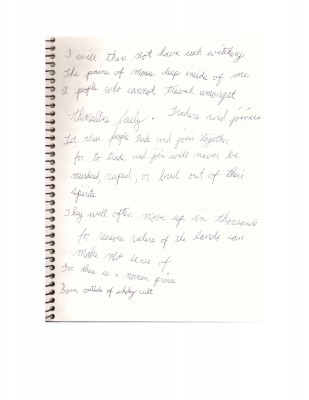 I will then not have such witchery
The pains of moses deep inside of me
A people who cannot travel amongst
Themselves freely. Traders and joiners
Let these people trade and join together
for to trade and join will never be
murdered, raped, or bred out of their
spirits
They will often move up in thousands
for reasons rulers of the lands can
make not sense of
For there is a roman prince
Born outside of cult